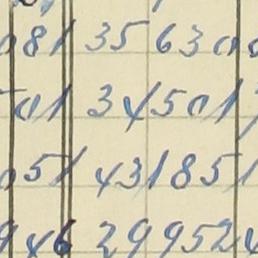 081 35 630
01 34501
051 431851
946 29952